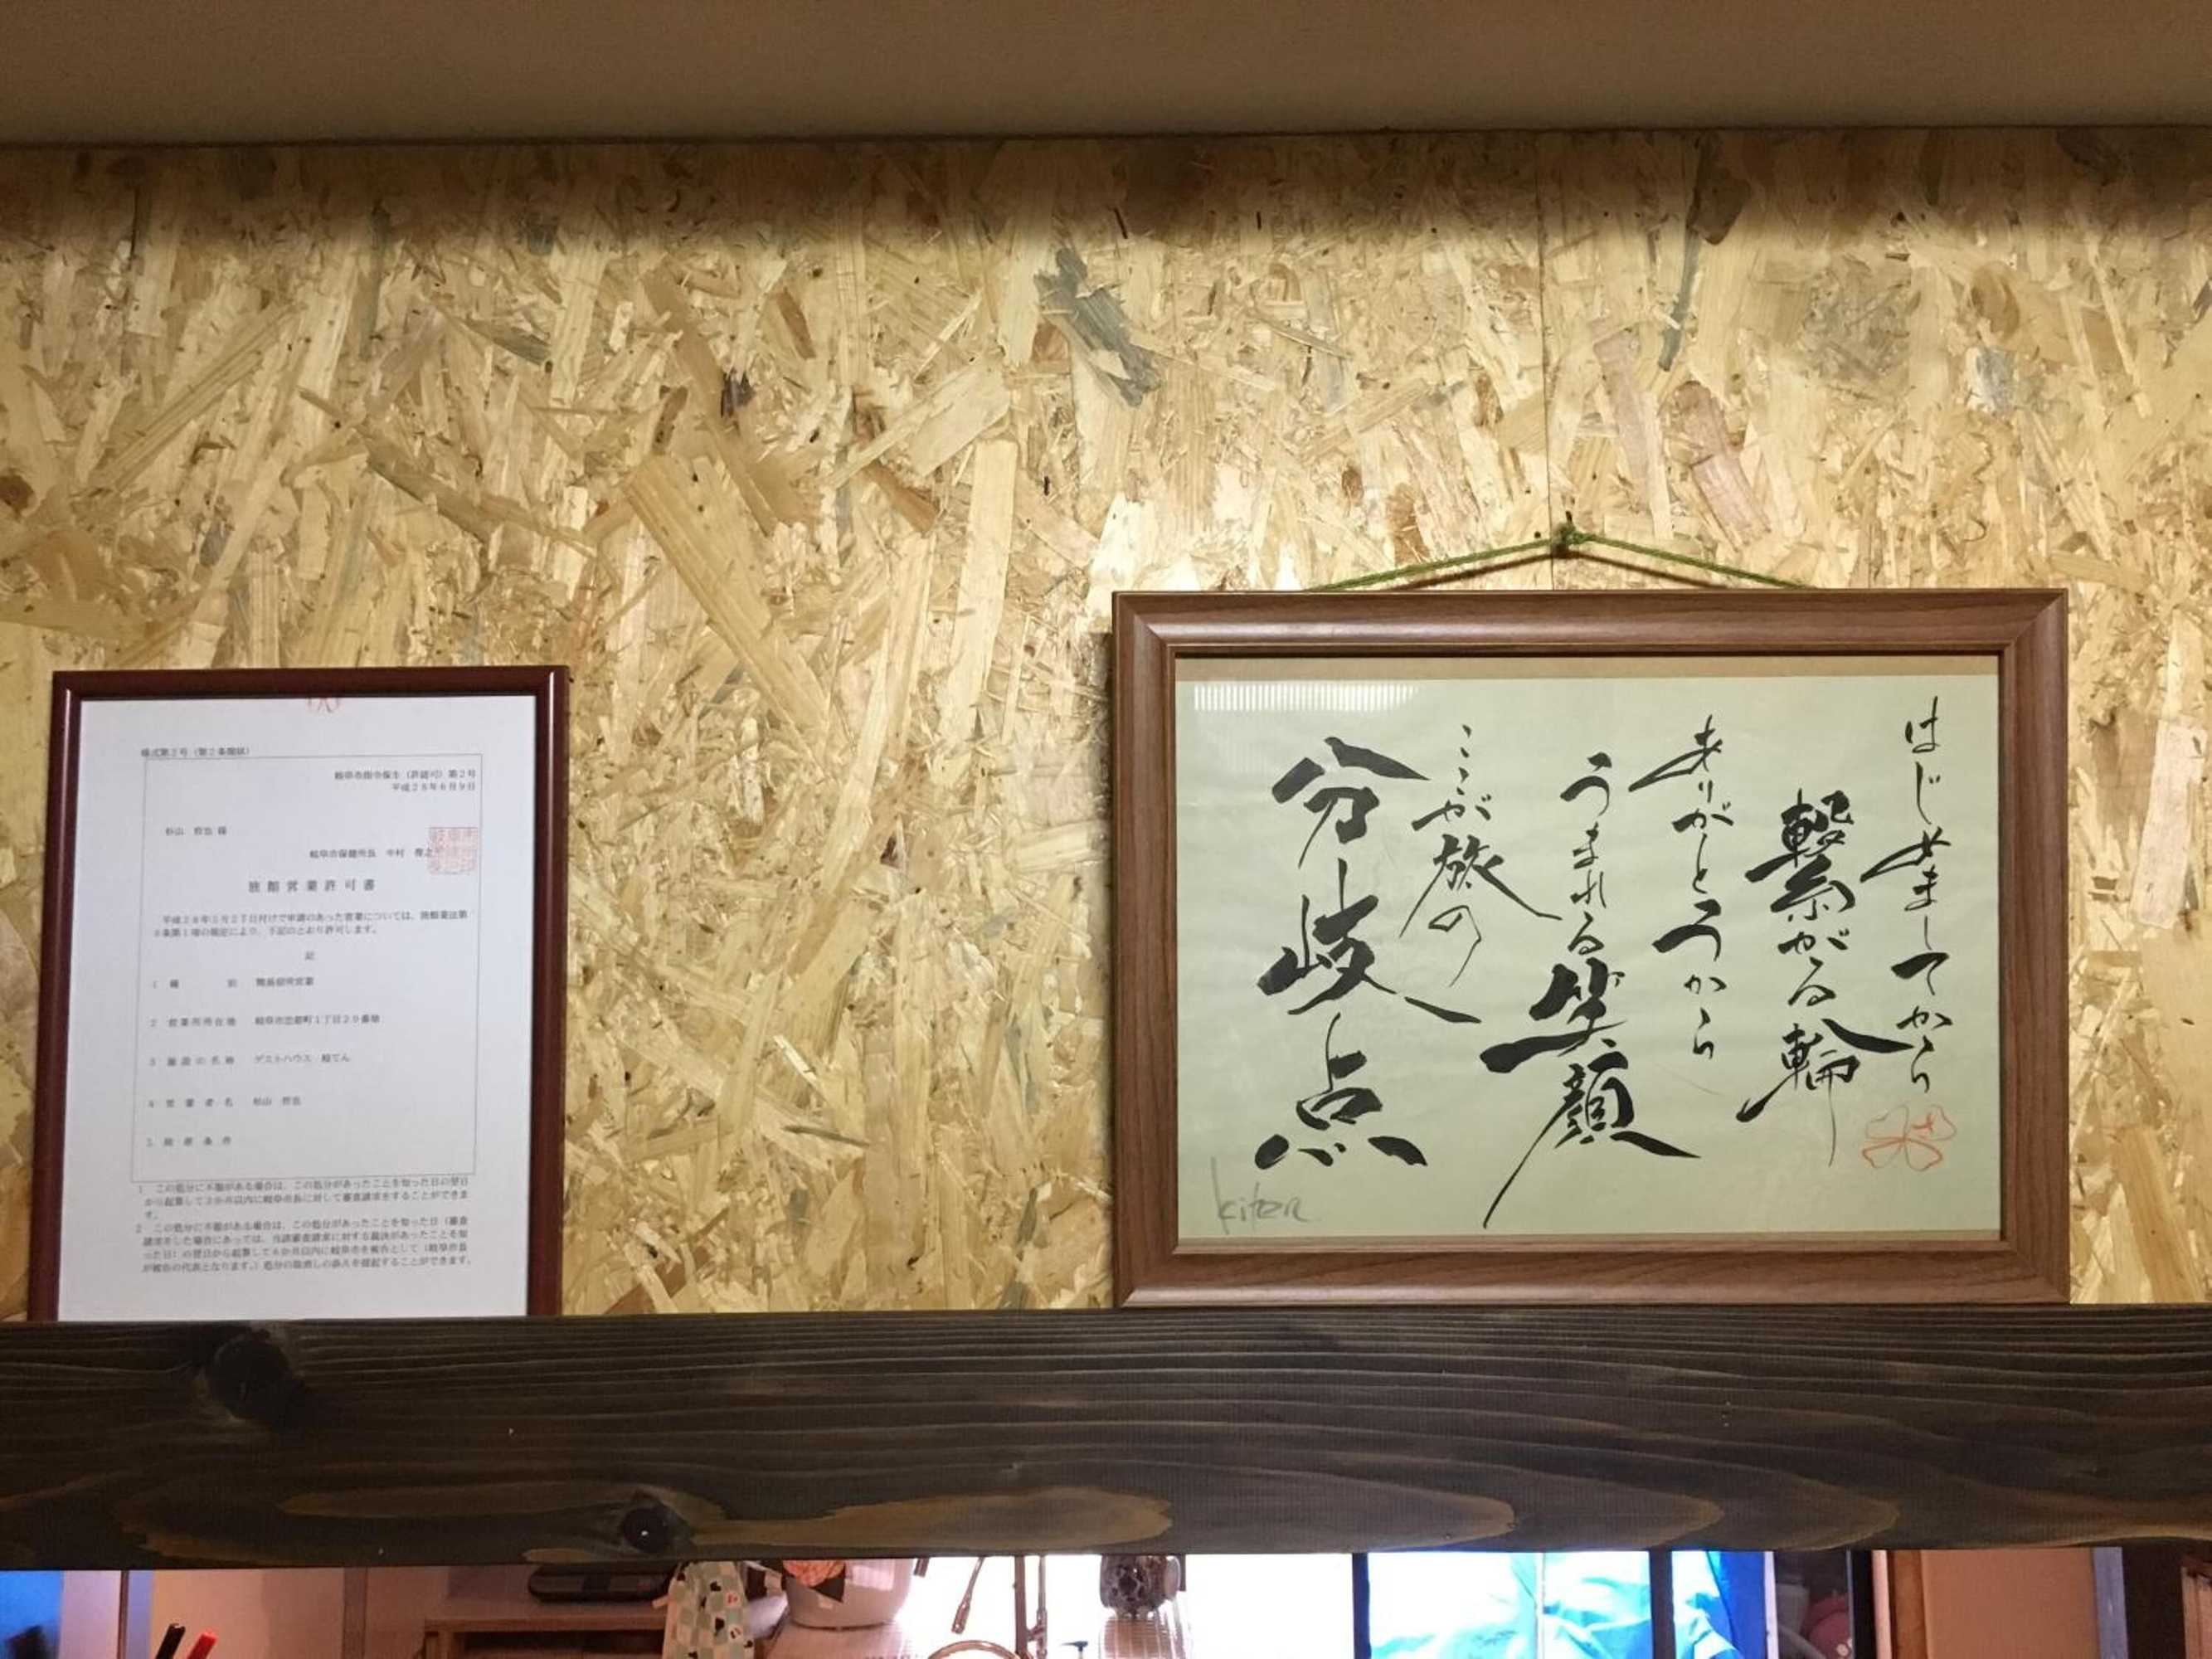 様式第2号(第2条関係)
岐阜市指令保生(許認可)第2号
平成28年6月9日
杉山 哲也 様
岐阜市保健所長 中村
旅館営業許可書
平成28年5月27日付けで申請のあった営業については、旅館業法第
3条第1項の規定により、下記のとおり許可します。
記
1 種別 簡易宿所営業
2 営業所所在地 岐阜市忠節町1丁目29番地
3 施設の名称 ゲストハウス てん
4 営業者名 杉山 哲也
5
1 この処分に不服がある場合は、この処分があったことを知った日の翌日
から起算して3か月以内に岐阜市長に対して審査請求をすることができま
す。
2 この処分に不服がある場合は、この処分があったことを知った日(審査
請求をした場合にあっては、当該審査請求に対する裁決があったことを知
った日)の翌日から起算して6か月以内に岐阜市を被告として(岐阜市長
が被告の代表となります。)処分の取消しの訴えを提起することができます。
はじめましてから
繋がる輪
ありがとうから
うまれる笑顔
ここが旅の
分岐点